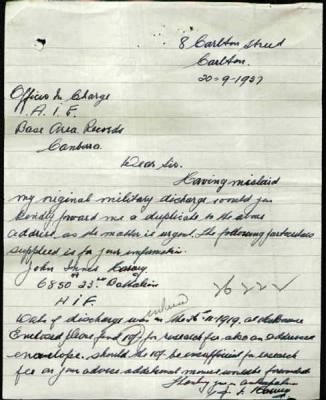 8 Carlton Street
Carlton.
20-9-1937
Officer In Charge
A. I. F.
Base Area Records
Canberra
Dear Sir.
Having mislaid
my original military discharge would you
kindly forward me a duplicate to the above
address as the matter is urgent. The following particulars
supplied is for your information.
John Innes
6850 23rd Battalion
A I F.
Date of discharge was in the 1919, at
Enclosed please find for research fee also an addressed
envelope. should the be insufficient for research
fee on your advice additional money would be forwarded
Thanking you in anticipation